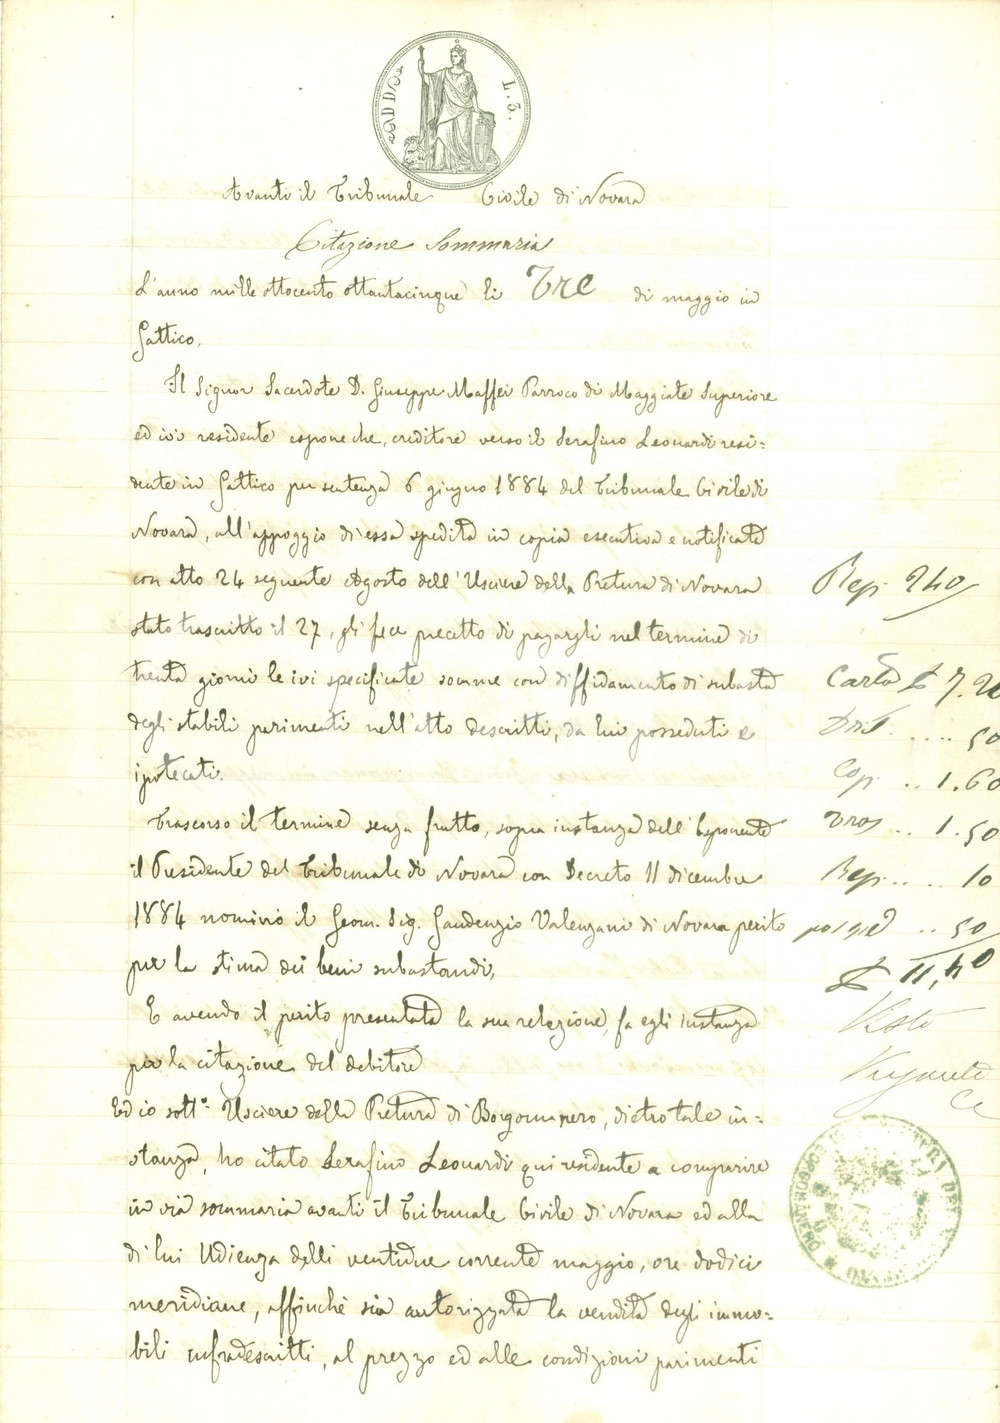 L. 3.
Avanti il Tribunale Civile di Novara
Citazione Sommaria
L'anno mille ottocento ottantacinque li Tre di maggio in
Gattico.
Il Signor Sacerdote D. Giuseppe Maffei Parroco di Maggiate Superiore
ed ivi residente espone che, creditore verso il Serafino Leonardi resi=
dente in Gattico per sentenza 6 giugno 1884 del Tribunale Civile di
Novara, all'appoggio di essa spedita in copia esecutiva e notificata
con atto 24 seguente Agosto dell'Usciere della Pretura di Novara
stato trascritto il 27, gli fece precetto di pagargli nel termine di
trenta giorni le ivi specificate somme con diffidamento di subasta
degli stabili parimenti nell'atto descritti, da lui posseduti e
ipotecati.
Trascorso il termine senza frutto, sopra instanza dell'Esponente
il Presidente del Tribunale di Novara con Decreto 11 dicembre
1884 nominò il Geom. Sig. Gaudenzio Valenzani di Novara perito
per la stima dei beni subastandi,
E avendo il perito presentata la sua relazione, fa egli instanza
per la citazione del debitore
Ed io sott.° Usciere della Pretura di Borgomanero, dietro tale in=
stanza, ho citato Serafino Leonardi qui residente a comparire
in via sommaria avanti il Tribunale Civile di Novara ed alla
di lui Udienza delli ventidue corrente maggio, ore dodici
meridiane, affinchè sia autorizzata la vendita degli immo=
bili infradescritti, al prezzo ed alle condizioni parimenti
Rep. 240
Carta £ 7.20
Drit. .... 50
Cop. .. 1.60
.. 1.50
Rep. .... 10
.. 50
£ 11,40
Visto
BORGOMANERO